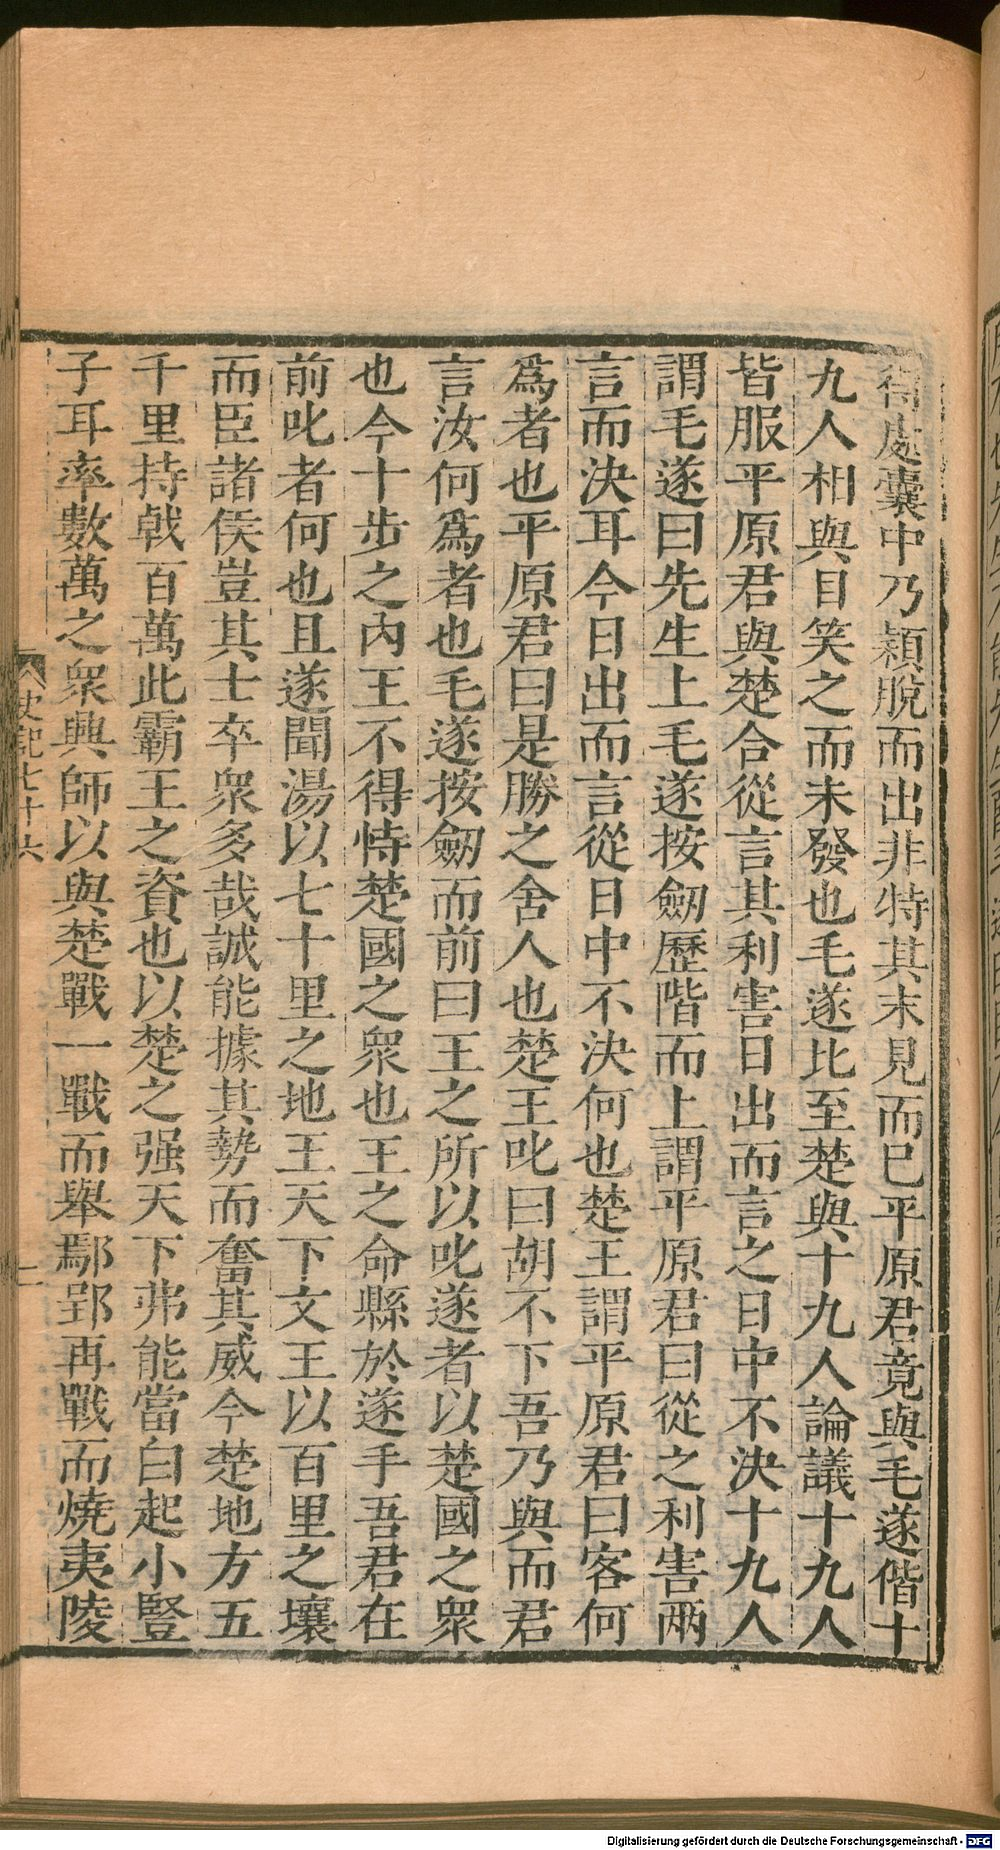 得處囊中乃穎脫而出非特其末見而已平原君竟與毛遂偕十
九人相與目笑之而未發也毛遂比至楚與十九人論議十九人
皆服平原君與楚合從言其利害日出而言之日中不決十九人
謂毛遂曰先生上毛遂按劒歷階而上謂平原君曰從之利害兩
言而決耳今日出而言從日中不決何也楚王謂平原君曰客何
爲者也平原君曰是勝之舍人也楚王叱曰胡不下吾乃與而君
言汝何爲者也毛遂按劒而前曰王之所以叱遂者以楚國之衆
也今十步之內王不得恃楚國之衆也王之命縣於遂手吾君在
前叱者何也且遂聞湯以七十里之地王天下文王以百里之壤
而臣諸侯豈其士卒衆多哉誠能據其勢而奮其威今楚地方五
千里持戟百萬此霸王之資也以楚之强天下弗能當白起小豎
子耳率數萬之衆興師以與楚戰一戰而舉鄢郢再戰而燒夷陵
史記七十六
Digitalisierung gefördert durch die Deutsche Forschungsgemeinschaft - DFG